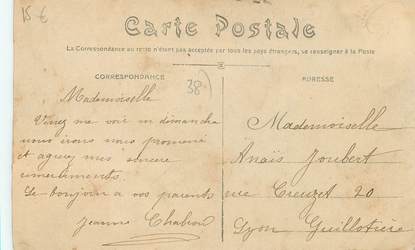 15 €
Carte Postale
La Correspondance au recto n'étant pas acceptée par tous les pays étrangers, se renseigner à la Poste
CORRESPONDANCE
ADRESSE
38)
Mademoiselle
Venez me voir un dimanche
nous irons nous promené
et agreez mes sincere
Le bonjour a vos parents
Jeanne Chabrou
Mademoiselle
Anaïs Joubert
rue Creuzet 20
Lyon Guillotière